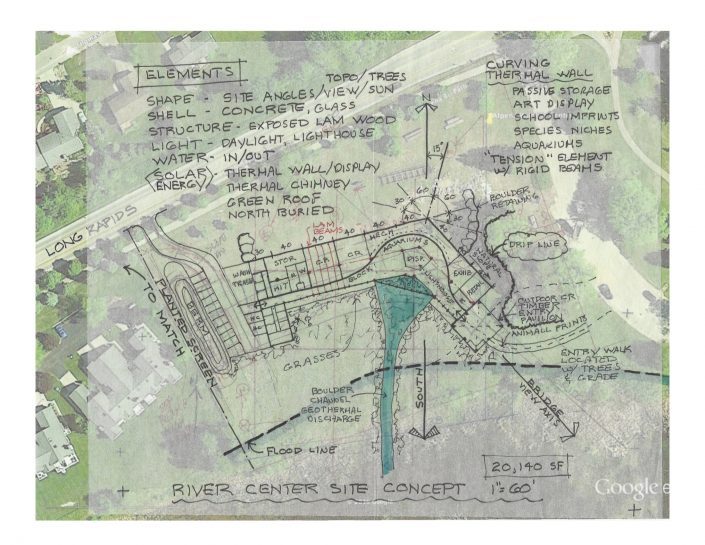 ELEMENTS
TOPO/TREES
SHAPE - SITE ANGLES/VIEW/SUN
SHELL - CONCRETE, GLASS
STRUCTURE - EXPOSED LAM WOOD
LIGHT - DAYLIGHT, LIGHTHOUSE
WATER - IN/OUT
SOLAR ENERGY - THERMAL WALL/DISPLAY
THERMAL CHIMNEY
GREEN ROOF
NORTH BURIED
CURVING
THERMAL WALL
PASSIVE STORAGE
ART DISPLAY
SCHOOL IMPRINTS
SPECIES NICHES
AQUARIUMS
"TENSION" ELEMENT
W/ RIGID BEAMS
N
15°
30 60
60 30
BOULDER
RETAINING
LONG RAPIDS
LAM
BEAMS
30 40 40 40 40
MECH
DRIP LINE
STOR
C.R.
C.R.
AQUARIUMS
DISP.
EXHIB
WASH
TRASH
KIT
BLOCK
BERM
TO MATCH
PLANTED SCREEN
OUTDOOR CR
TIMBER
ENTRY
PAVILION
ANIMAL PRINTS
GRASSES
ENTRY WALK
LOCATED
W/ TREES
& GRADE
BOULDER
CHANNEL
GEOTHERMAL
DISCHARGE
SOUTH
BRIDGE
VIEW AXIS
FLOOD LINE
20,140 SF
RIVER CENTER SITE CONCEPT 1"=60'
Google